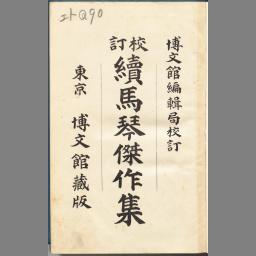 博文館編輯局校訂
校訂
續馬琴傑作集
東京 博文館藏版